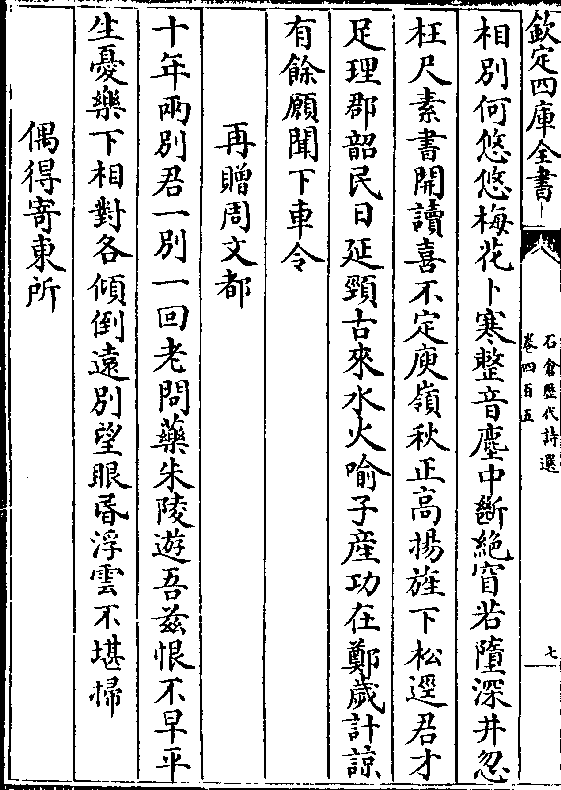 欽定四庫全書
石倉歷代詩選
卷四百五
七
相別何悠悠梅花卜寒整音塵中斷絶窅若墮深井忽
枉尺素書開讀喜不定庾嶺秋正高揚旌下松逕君才
足理郡韶民日延頸古來水火喻子産功在鄭歲計諒
有餘願聞下車令
再贈周文都
十年兩別君一別一回老問藥朱陵遊吾兹恨不早平
生憂樂下相對各傾倒遠別望眼昏浮雲不堪掃
偶得寄東所